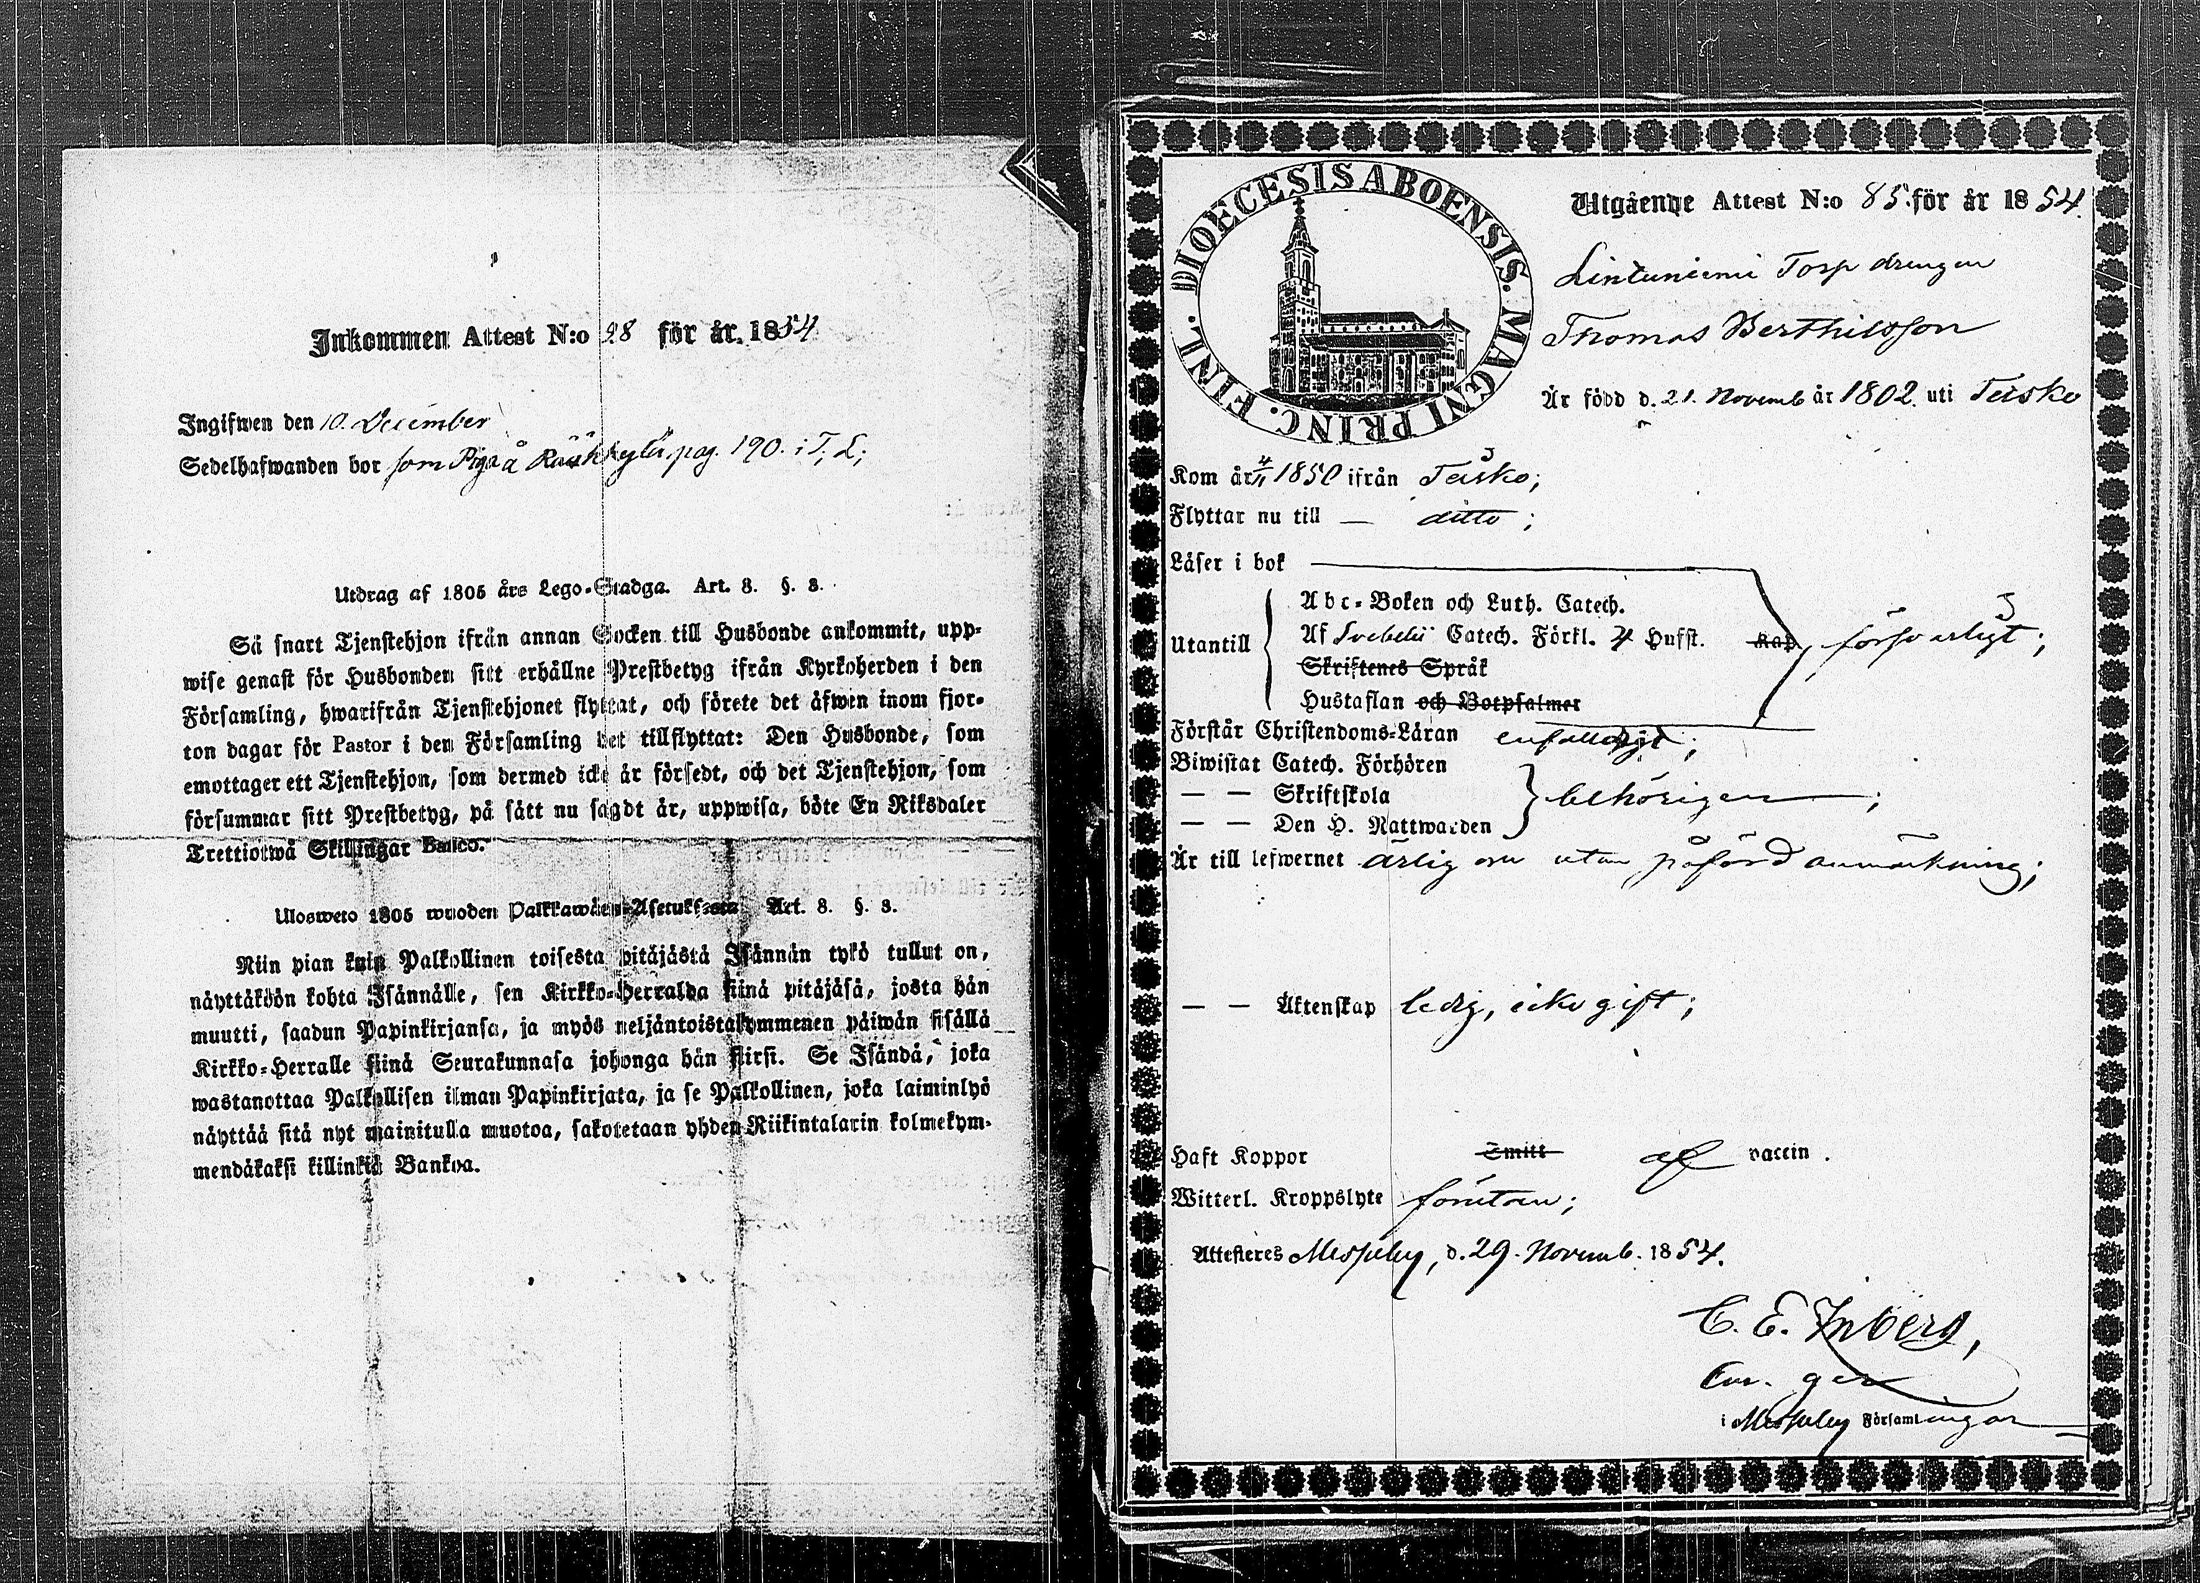 Inkommen Attest N:o 98 för år 1854
Ingifwen den 10. December
Sedelhafwanden bor som Piga å pag. 190. i T. L;
Utdrag af 1805 års Lego-Stadga. Art. 8. §. 3.
Så snart Tjenstehjon ifrån annan Socken till Husbonde ankommit, upp-
wise genast för Husbonden sitt erhållne Prestbetyg ifrån Kyrkoherden i den
Församling, hwarifrån Tjenstehjonet flyttat, och förete det äfwen inom fjor-
ton dagar för Pastor i den Församling det tillflyttat: Den Husbonde, som
emottager ett Tjenstehjon, som dermed icke är försedt, och det Tjenstehjon, som
försummar sitt Prestbetyg, på sätt nu sagdt är, uppwisa, böte En Riksdaler
Trettiotwå Skillingar Banco.
Ulosweto 1805 wuoden Palkkawäen-Asetuksesta Art. 8. §. 3.
Niin pian kuin Palkollinen toisesta pitäjästä Isännän tykö tullut on,
näyttäköön kohta Isännälle, sen Kirkko-Herralda siinä pitäjäsä, josta hän
muutti, saadun Papinkirjansa, ja myös neljäntoistakymmenen päiwän sisällä
Kirkko-Herralle siinä Seurakunnasa johonga hän siirsi. Se Isändä, joka
wastanottaa Palkollisen ilman Papinkirjata, ja se Palkollinen, joka laiminlyö
näyttää sitä nyt mainitulla muotoa, sakotetaan yhden Riikintalarin kolmekym-
mendäkaksi killinkiä Bankoa.
DIOECESIS ABOENSIS. MAGNI PRINC. FINL.
Utgående Attest N:o 85. för år 1854.
Lintuniemi Torp drengen
Thomas Berthilsson
Är född d. 21. Novemb år 1802. uti Teisko
Kom år 4/11 1850 ifrån Teisko;
Flyttar nu till — ditto;
Läser i bok
Utantill
Abc-Boken och Luth. Catech.
Af Svebelii Catech. Förkl. 4 Hufst. Kap. försvarligt;
Skriftenes Språk
Hustaflan och Botpsalmer
Förstår Christendoms-Läran enfalldigt;
Biwistat Catech. Förhören
— — Skriftskola
behörigen;
— — Den H. Nattwarden
Är till lefwernet ärlig utan påförd anmärkning;
— — Äktenskap ledig, icke gift;
Haft Koppor Smitt af vaccin.
Witterl. Kroppslyte förutan;
Attesteres Messuby, d. 29. Novemb. 1854.
C. E. Inberg,
i Messuby Församlingar